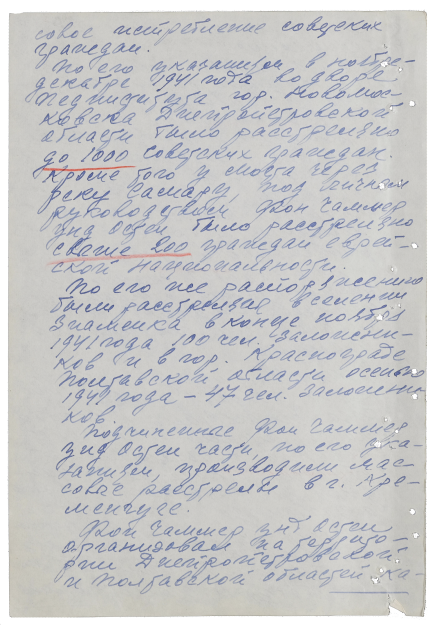 совое истребление советских
граждан.
По его указаниям в ноябре-
декабре 1941 года во дворе
Пединститута гор. Новомос-
ковска Днепропетровской
области было расстреляно
до 1000 советских граждан.
Кроме того у моста через
реку Самару, под личным
руководством Фон Чаммер
унд Остен было расстреляно
свыше 200 граждан еврей-
ской национальности.
По его же распоряжению
были расстреляны в селении
Знаменка в конце ноября
1941 года 100 чел. заложни-
ков и в гор. Краснограде
Полтавской области осенью
1941 года – 47 чел. заложни-
ков.
Подчиненные Фон Чаммер
унд Остен части, по его ука-
заниям, производили мас-
совые расстрелы в г. Кре-
менчуге.
Фон Чаммер унд Остен
организовал на террито-
рии Днепропетровской
и Полтавской областей ка-